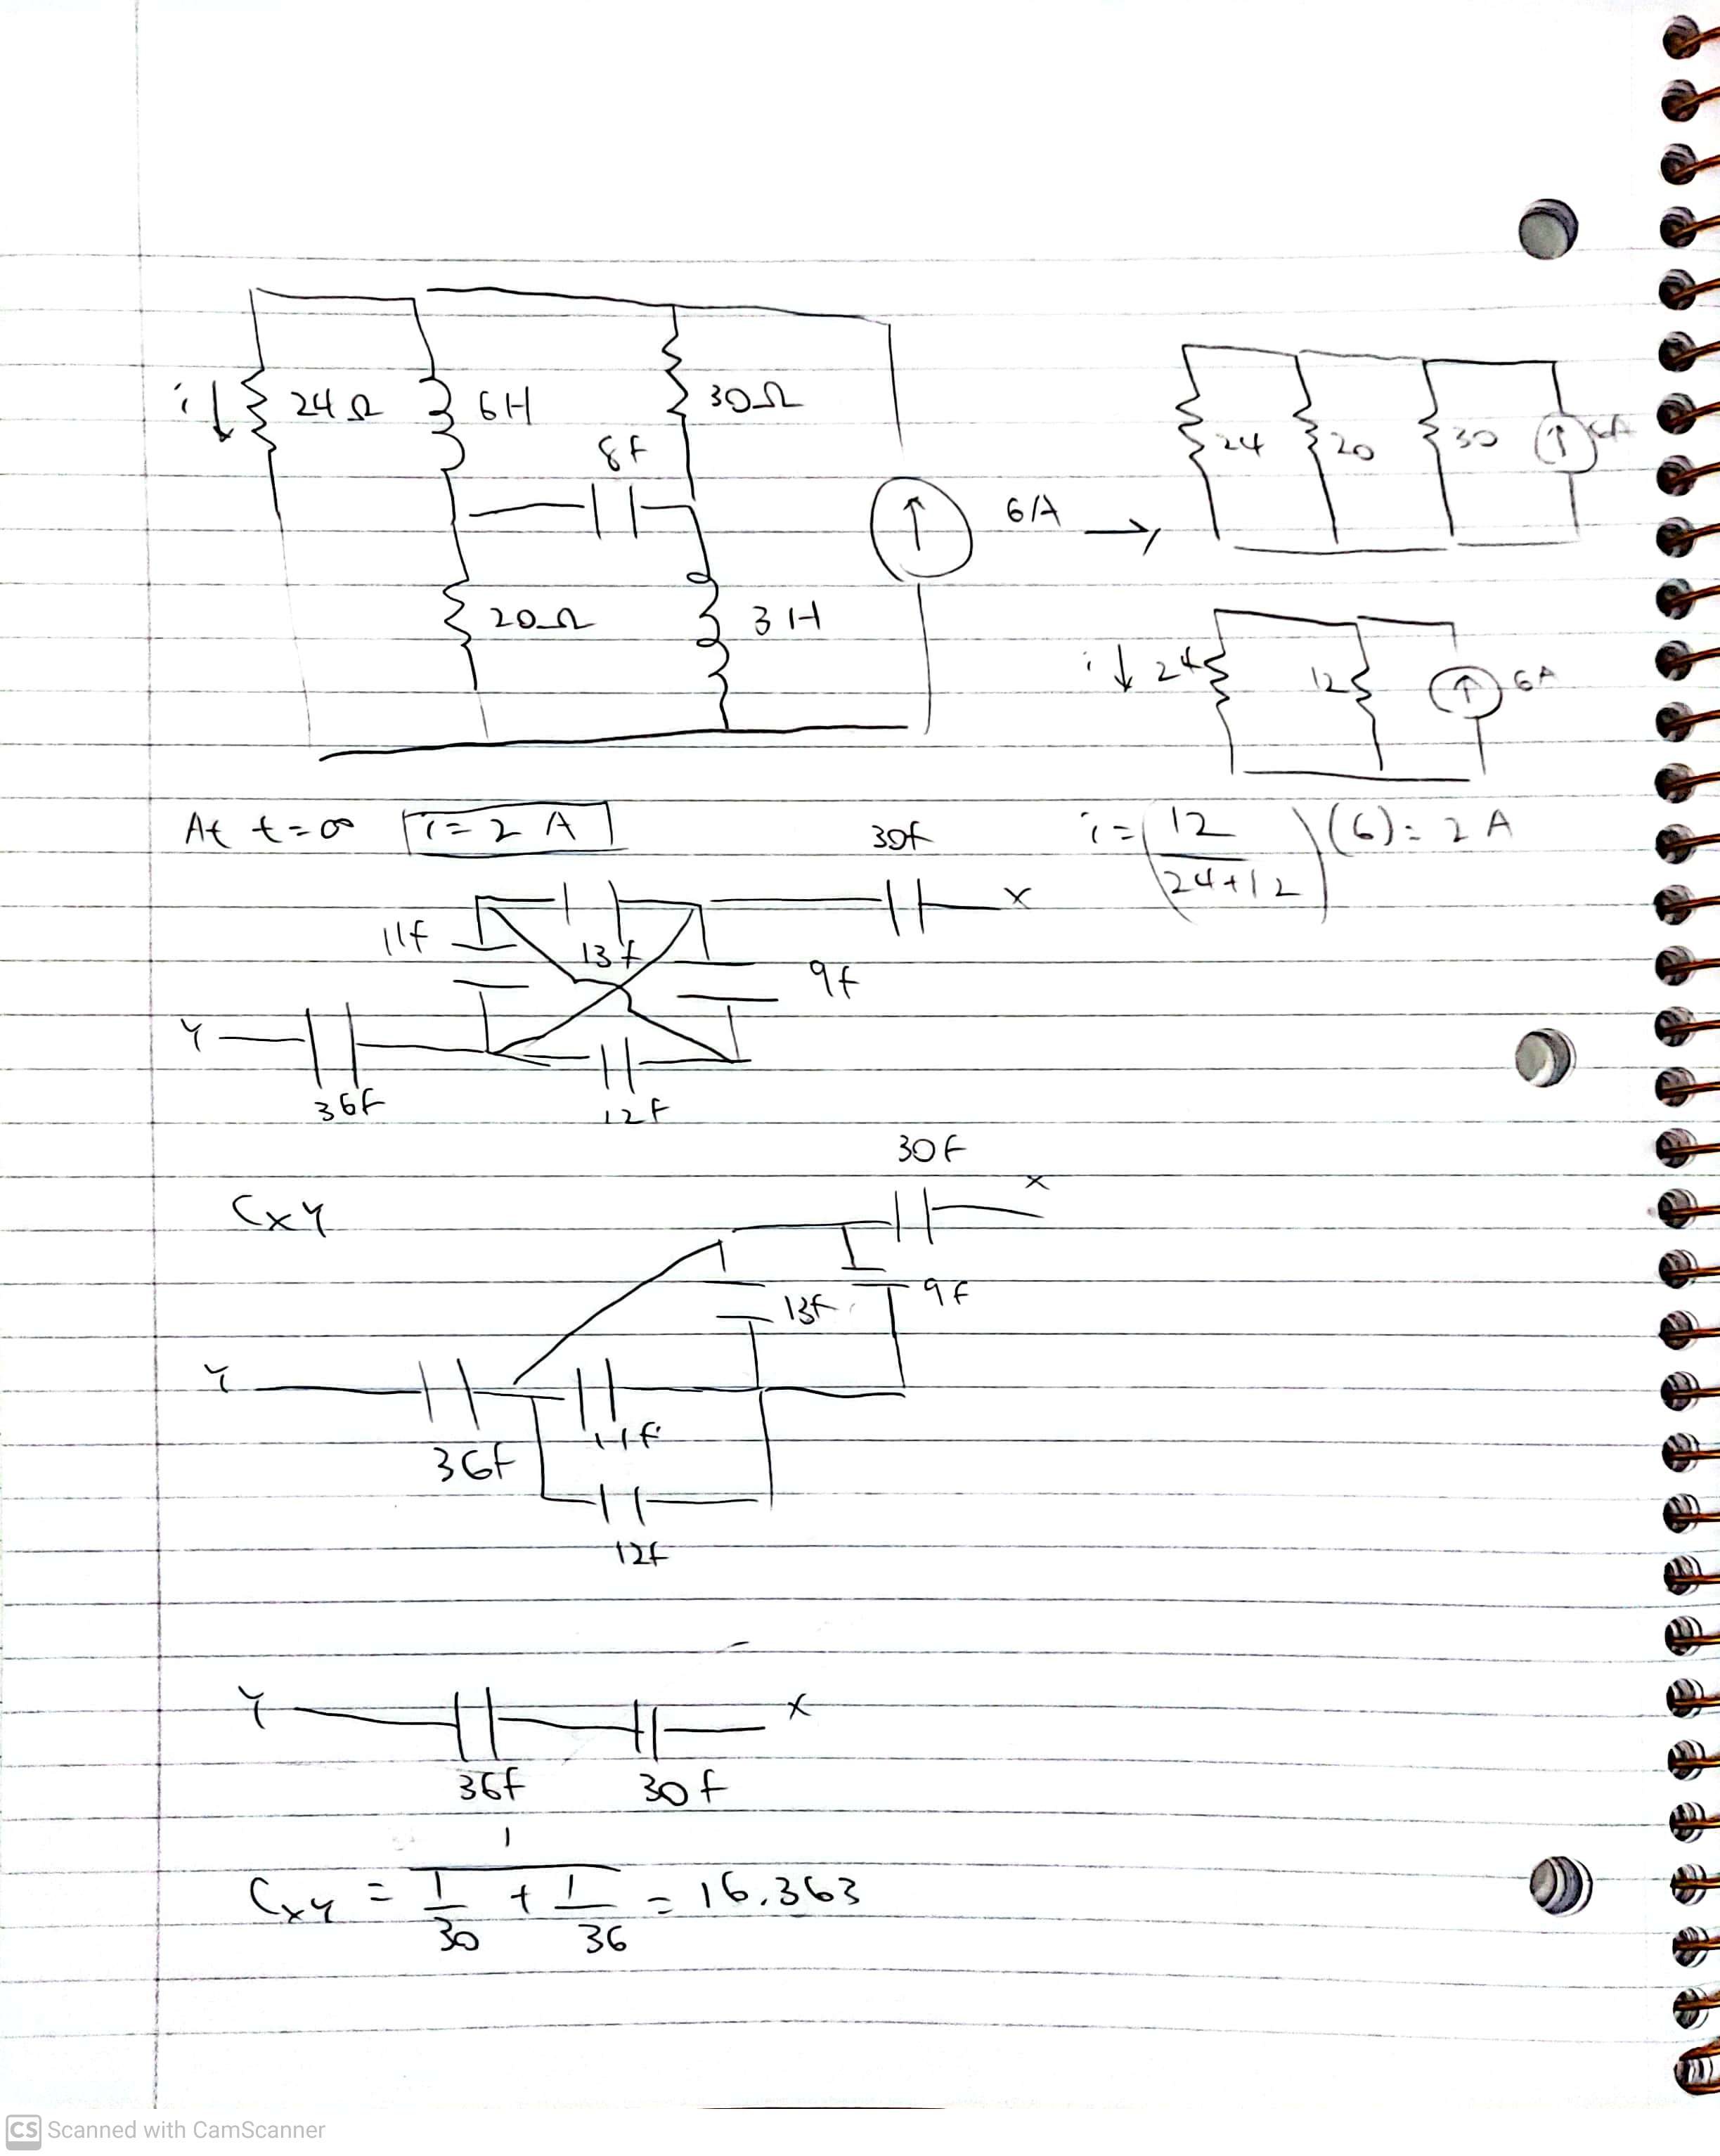 i↓ 24Ω 6H 30Ω
8f
6A →
20Ω 3H
24 20 30 6A
i↓ 24 12 6A
At t=∞ i = 2 A
i = (12 / (24+12)) (6) = 2 A
30f
x
11f 13f 9f
Y
36f 12f
30f
CxY x
13f 9f
Y
36f 11f
12f
Y x
36f 30f
CxY = 1 / (1/30 + 1/36) = 16.363
CS Scanned with CamScanner